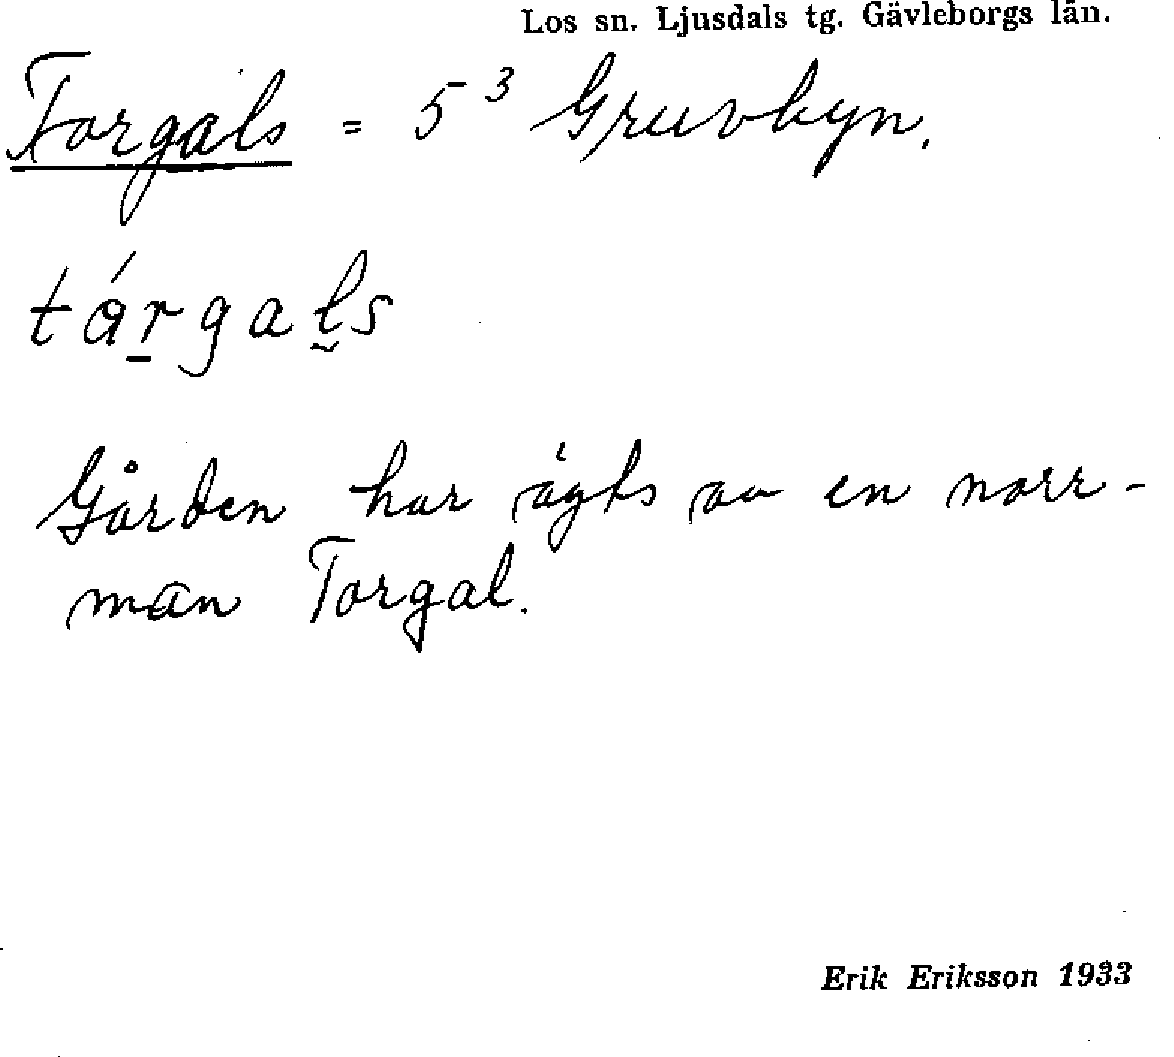 Los sn. Ljusdals tg. Gävleborgs län.
Torgals = 5³ Gruvbyn.
tárgals
Gården har ägts av en norr-
man Torgal.
Erik Eriksson 1933